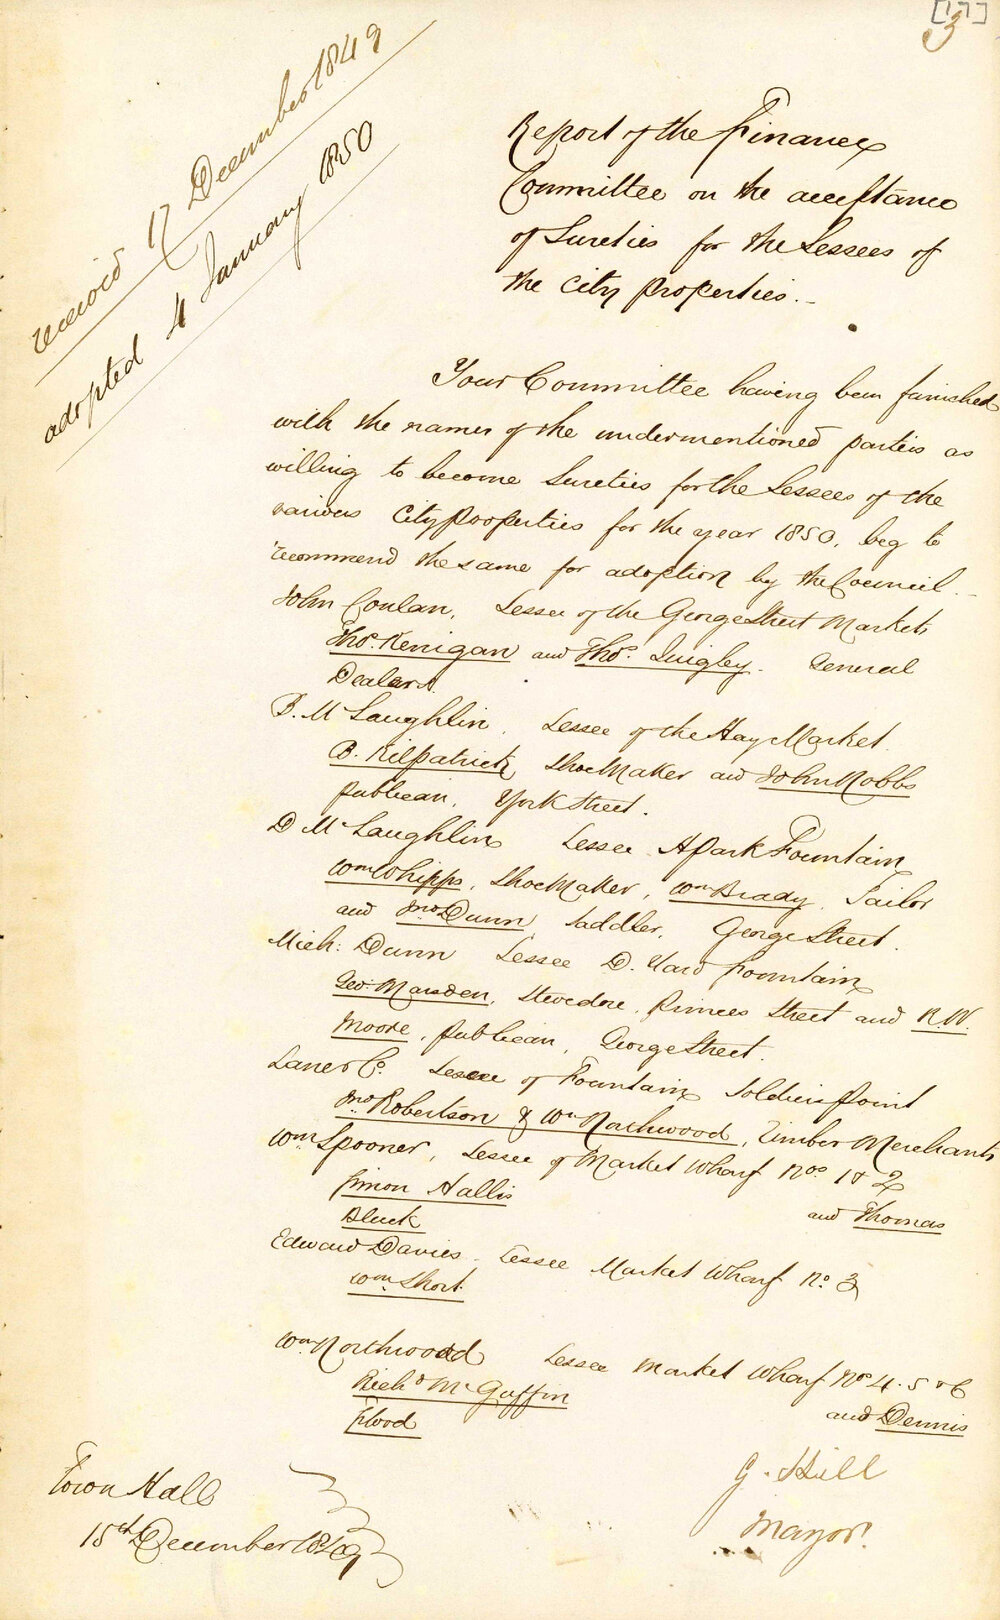 [17]
3
received 17 December 1849
adopted 4 January 1850
Report of the Finance
Committee on the acceptance
of Sureties for the Lessees of
the City Properties.
Your Committee having been furnished
with the names of the undermentioned parties as
willing to become Sureties for the Lessees of the
various City Properties for the year 1850, beg to
recommend the same for adoption by the Council.
John Conlan, Lessee of the George Street Markets
Thos. Kerrigan and Thos. Quigley. General
Dealers.
B. McLaughlin, Lessee of the Hay Market.
B. Kilpatrick, Shoe Maker and John Nobbs
publican, York Street.
D McLaughlin Lessee Hpark Fountain
Wm Whipps, Shoe Maker, Wm Brady, Tailor
and Jno Dunn, Saddler, George Street.
Mich: Dunn Lessee D. Yard Fountain
Geo. Marsden, Stevedore, Princes Street and R. W.
Moore, publican, George Street.
Lane & Co. Lessee of Fountain Soldiers point
Jno Robertson & Wm Northwood, Timber Merchants
Wm Spooner, Lessee of Market Wharf Nos. 1 & 2
Simon Hallis and Thomas
Black
Edward Davies, Lessee Market Wharf No. 3
Wm Short.
Wm Northwood Lessee Market Wharf Nos 4. 5 & 6
Richd McGuffin and Dennis
Flood
G. Hill
Mayor.
Town Hall
15th December 1849